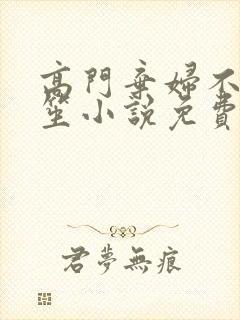 高門棄婦不
笙小說免費
君夢無痕